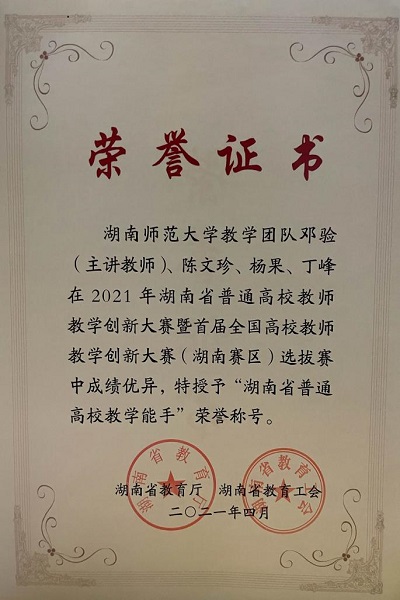 荣誉证书
湖南师范大学教学团队邓验
（主讲教师）、陈文珍、杨果、丁峰
在2021年湖南省普通高校教师
教学创新大赛暨首届全国高校教师
教学创新大赛（湖南赛区）选拔赛
中成绩优异，特授予“湖南省普通
高校教学能手”荣誉称号。
湖南省教育厅 湖南省教育工会
二〇二一年四月
湖南省教育厅
湖南省教育工会